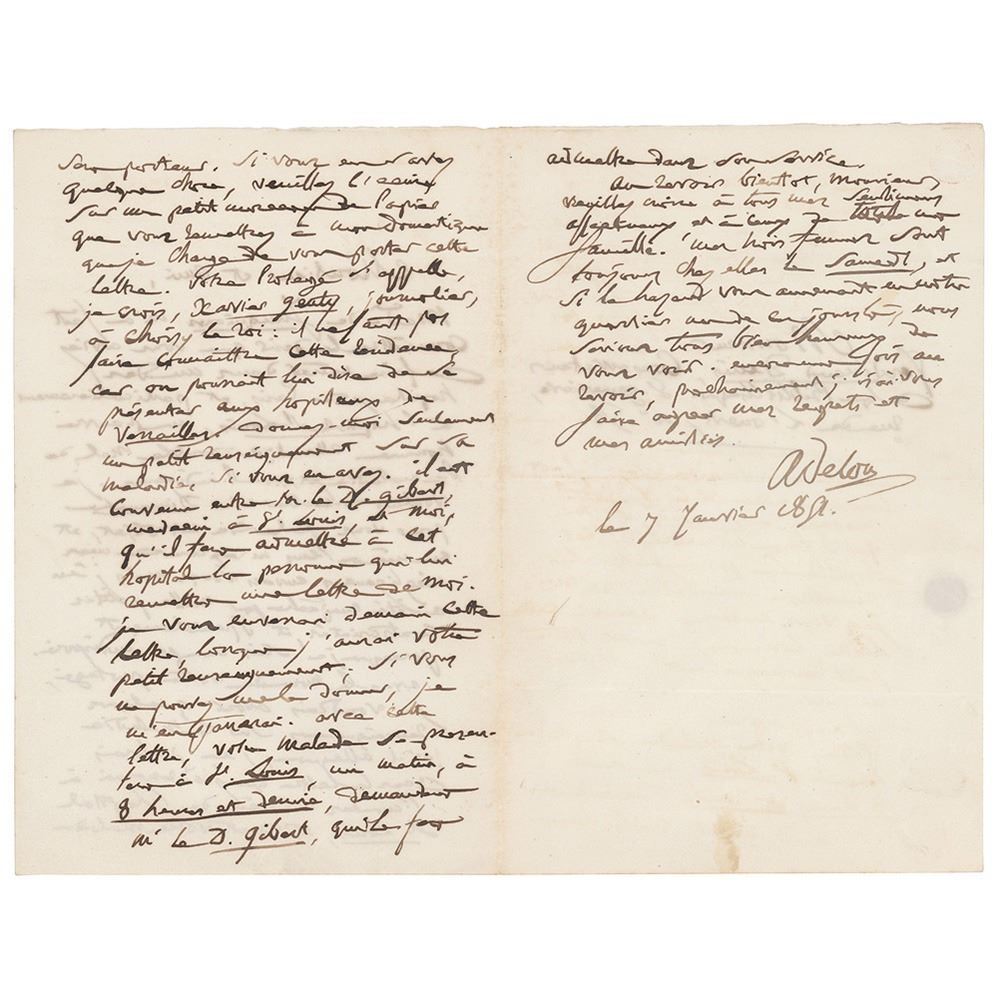 son porteur. Si vous en savez
quelque chose, veuillez l'écrire
sur un petit morceau de papier
que vous remettrez à mon domestique
que je charge de vous porter cette
lettre. Votre protégé s'appelle,
je crois, Xavier Genty, journalier,
à Choisy le Roi : il ne faut pas
faire connaître cette résidence,
car on pourrait lui dire de se
présenter aux hôpitaux de
Versailles. Donnez-moi seulement
un petit renseignement sur sa
maladie, si vous en avez. il est
convenu entre M. le D. Gibert,
médecin à St. Louis, et moi,
qu'il fera admettre à cet
hôpital la personne qui lui
remettra une lettre de moi.
je vous enverrai demain cette
lettre, lorsque j'aurai votre
petit renseignement. Si vous
ne pouvez me le donner, je
m'en passerai. avec cette
lettre, votre malade se présen-
tera à St. Louis, un matin, à
8 heures et demie, demandera
Mr le D. Gibert, qui le fera
admettre dans son service.
au revoir bientôt, Monsieur,
veuillez croire à tous mes sentiments
affectueux et à ceux de toute ma
famille. mes trois femmes sont
toujours chez elles le Samedi, et
si le hazard vous amenait en notre
quartier un de ces jours là, nous
serions tous bien heureux de
vous voir. encore une fois au
revoir, prochainement j'irai vous
faire agréer mes regrets et
mes amitiés.
le 7 Janvier 1851.